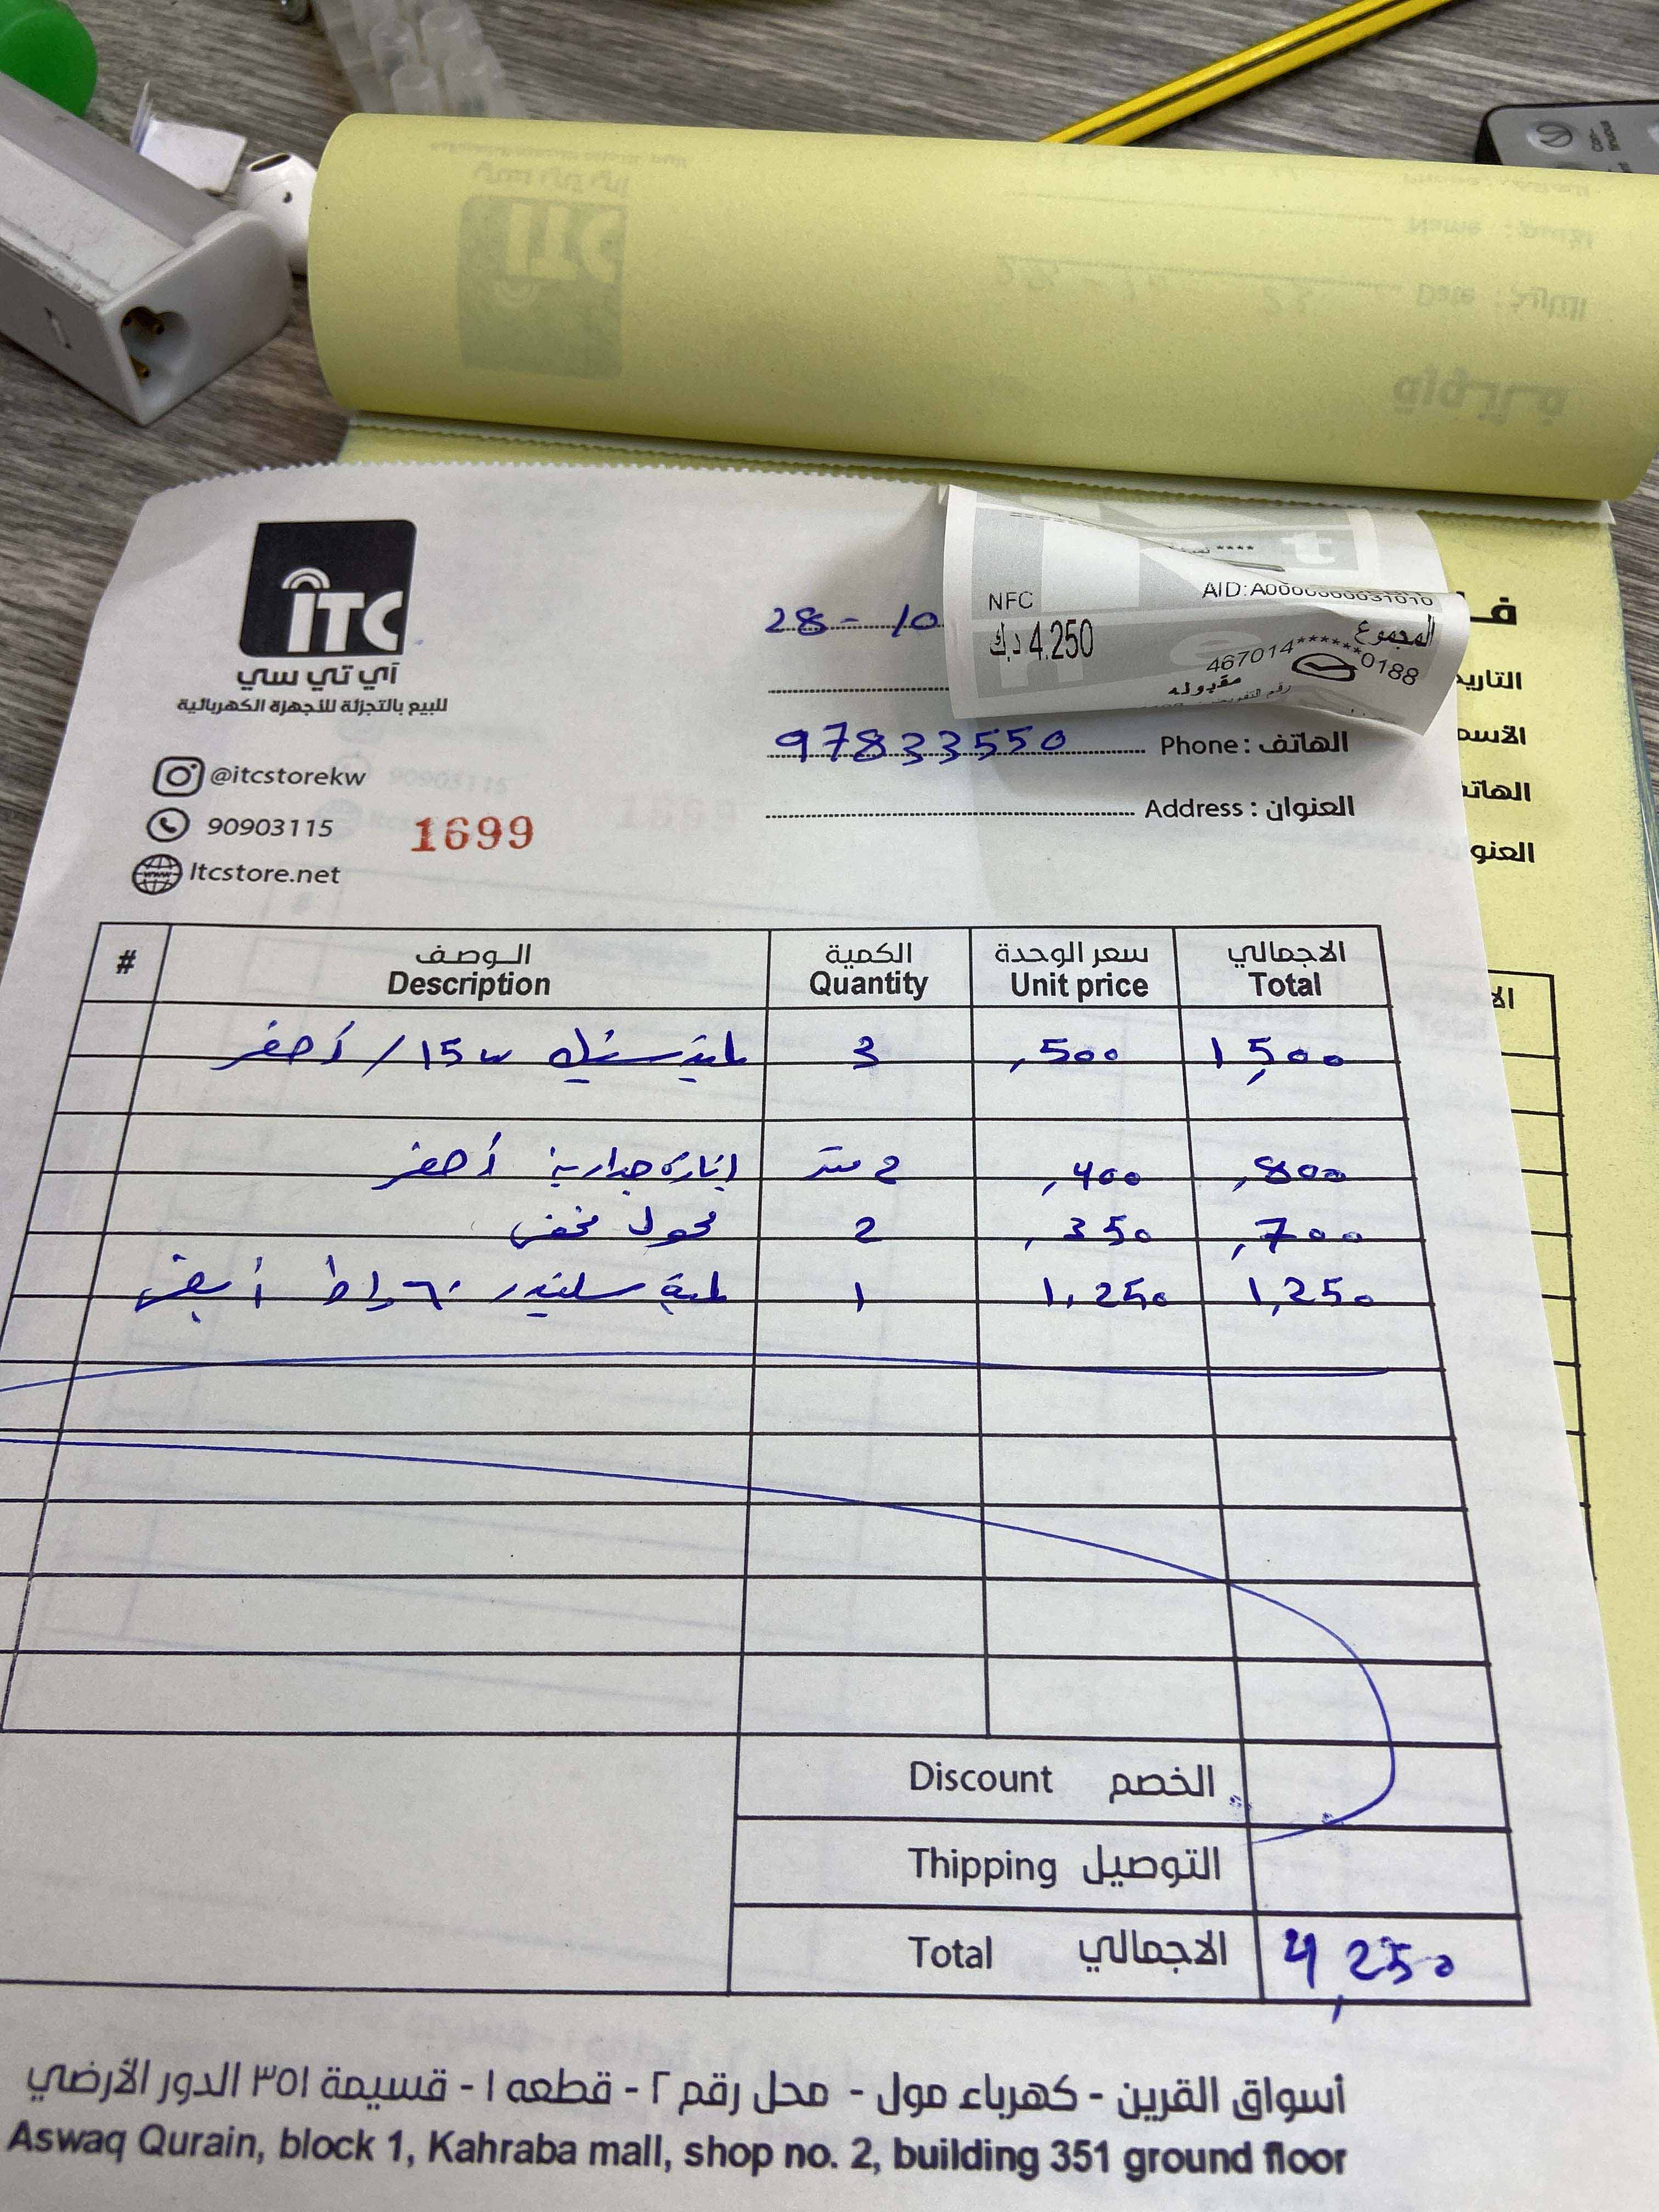 ITC
آي تي سي
للبيع بالتجزئة للأجهزة الكهربائية
@itcstorekw
90903115
Itcstore.net
1699
28 - 10
NFC
AID:A0000000031010
4.250 د.ك
المجموع
467014******0188
مقبوله
97833550 Phone : الهاتف
Address : العنوان
فا
التاريخ
الاسم
الهاتف
العنو
# الـوصـف الكمية سعر الوحدة الاجمالي
Description Quantity Unit price Total
15 w / أصفر 3 ,500 1,500
إنارة جدارية أصفر 2 متر ,400 ,800
محول مخفي 2 ,350 ,700
لمبة سلندر ٦٠ واط أبيض 1 1,250 1,250
Discount الخصم
Thipping التوصيل
Total الاجمالي 4,250
أسواق القرين - كهرباء مول - محل رقم ٢ - قطعه ١ - قسيمة ٣٥١ الدور الأرضي
Aswaq Qurain, block 1, Kahraba mall, shop no. 2, building 351 ground floor